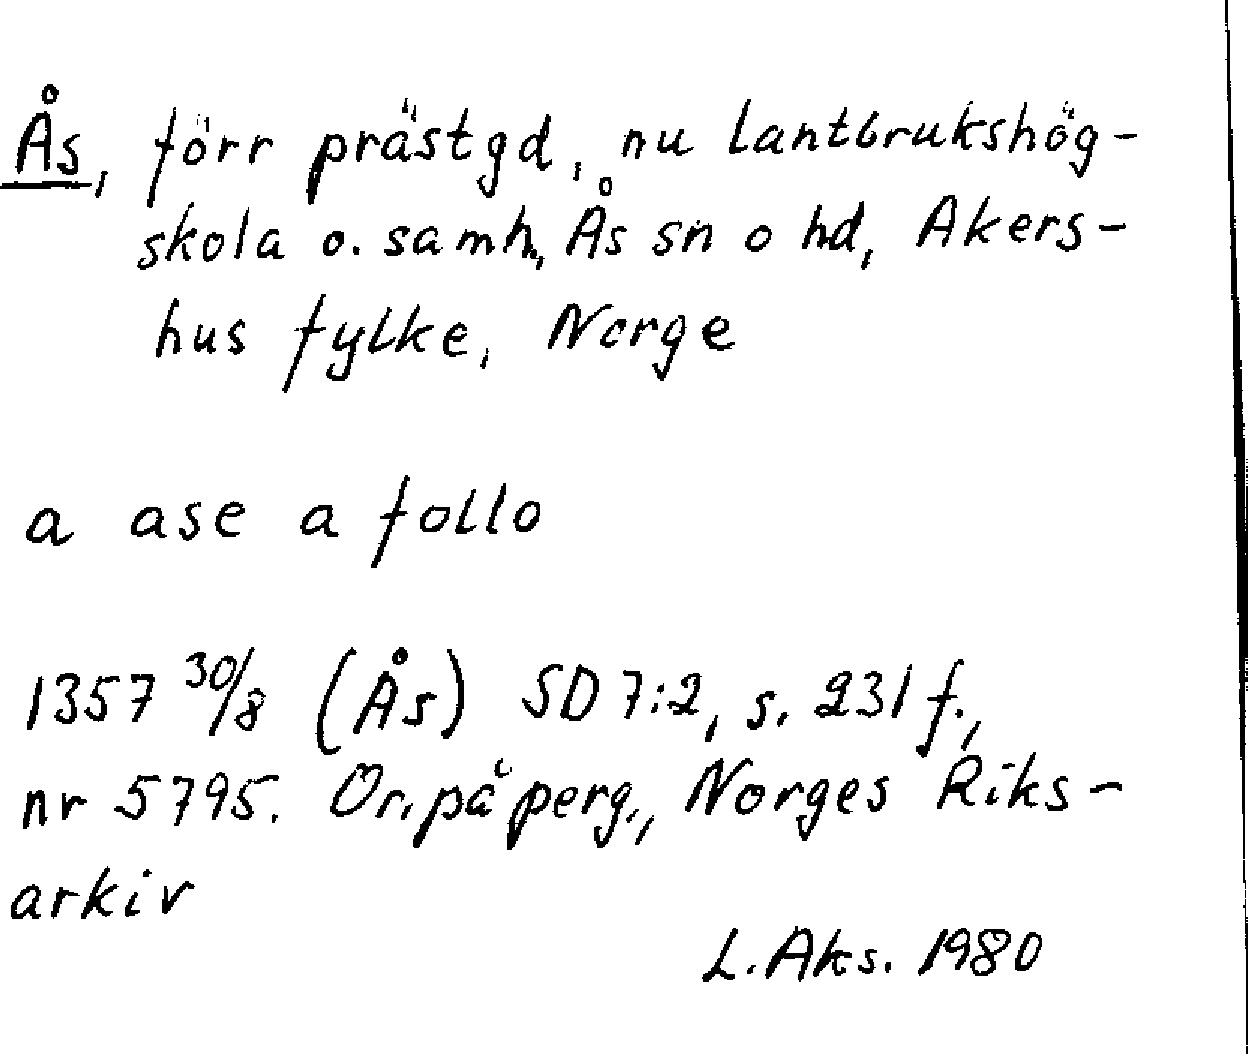 Ås, förr prästgd, nu lantbrukshög-
skola o. samh, Ås sn o hd, Akers-
hus fylke, Norge
a ase a follo
1357 30/8 (Ås) SD 7:2, s. 231 f.,
nr 5795. Or. på perg., Norges Riks-
arkiv
L. Aks. 1980